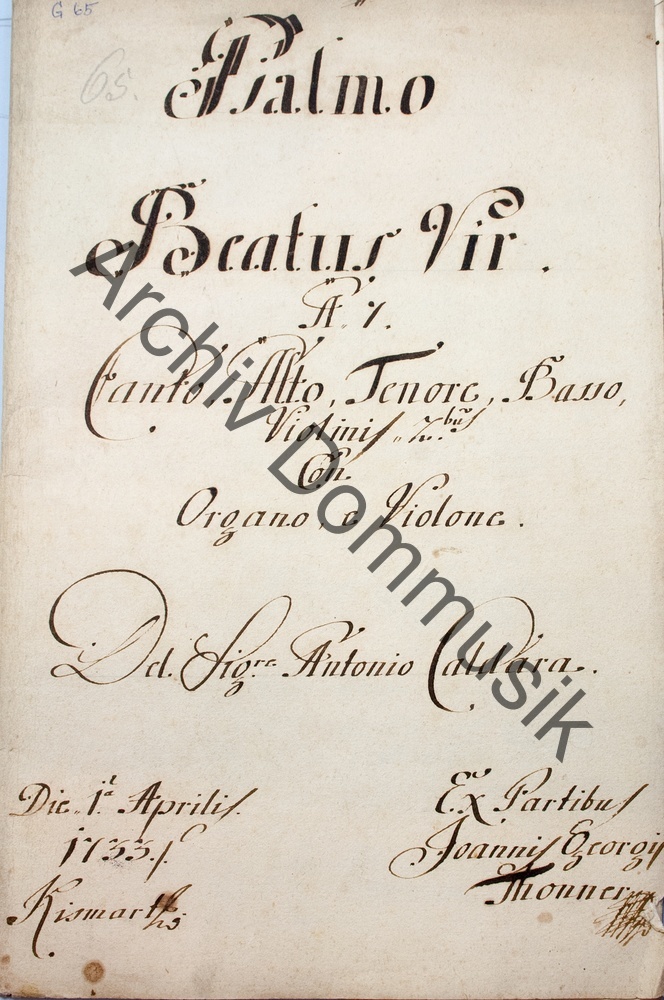 G 65
65.
Psalmo
Beatus Vir.
A. 7.
Canto, Alto, Tenore, Basso,
Violinis, 2.bus
Con
Organo, e Violone.
Del Sigre Antonio Caldara.
Die 1a Aprilis.
1733.
Ex Partibus
Joannis Georgij
Thonner
Archiv Dommusik